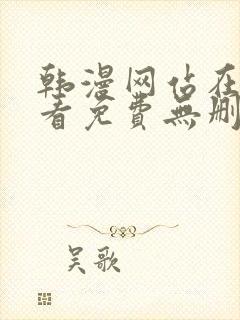 韩漫网站在
看免費無删
吴歌